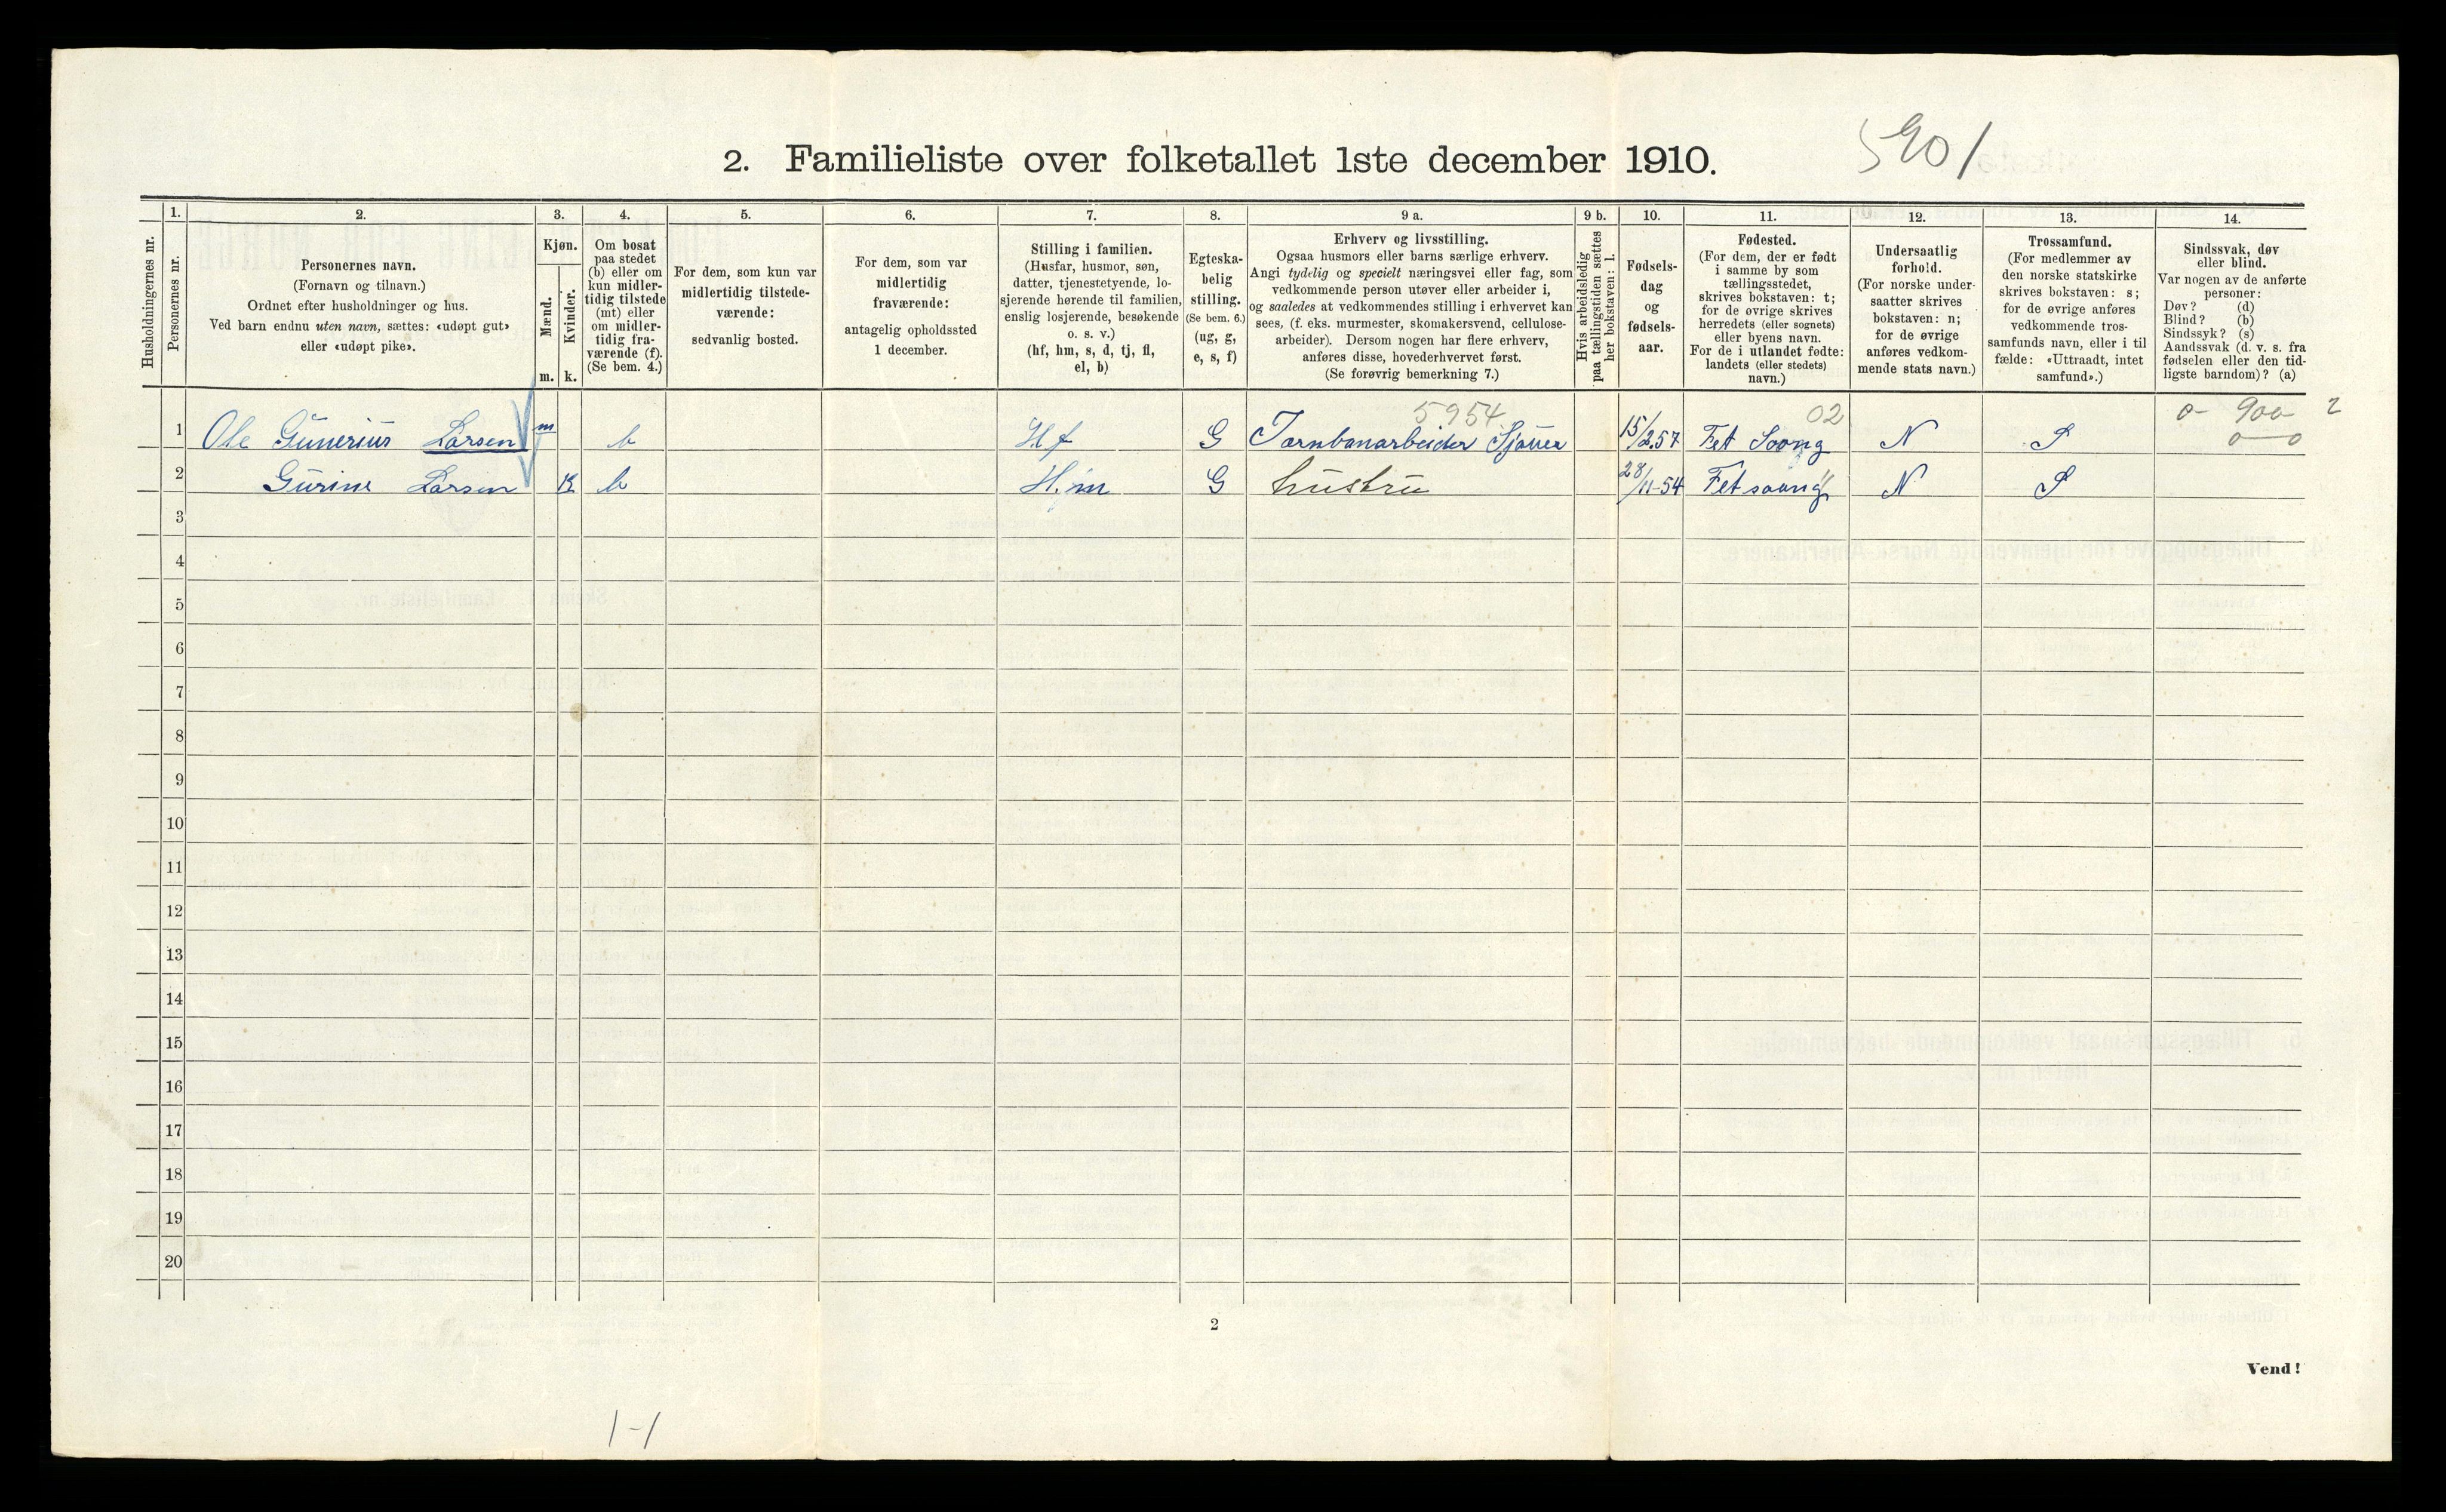 5901
2. Familieliste over folketallet 1ste december 1910.
Husholdningernes nr.
1. Personernes nr.
2. Personernes navn.
(Fornavn og tilnavn.)
Ordnet efter husholdninger og hus.
Ved barn endnu uten navn, sættes: «udøpt gut»
eller «udøpt pike».
3. Kjøn.
Mænd. m.
Kvinder. k.
4. Om bosat
paa stedet
(b) eller om
kun midler-
tidig tilstede
(mt) eller
om midler-
tidig fra-
værende (f).
(Se bem. 4.)
5. For dem, som kun var
midlertidig tilstede-
værende:
sedvanlig bosted.
6. For dem, som var
midlertidig
fraværende:
antagelig opholdssted
1 december.
7. Stilling i familien.
(Husfar, husmor, søn,
datter, tjenestetyende, lo-
sjerende hørende til familien,
enslig losjerende, besøkende
o. s. v.)
(hf, hm, s, d, tj, fl,
el, b)
8. Egteska-
belig
stilling.
(Se bem. 6.)
(ug, g,
e, s, f)
9 a. Erhverv og livsstilling.
Ogsaa husmors eller barns særlige erhverv.
Angi tydelig og specielt næringsvei eller fag, som
vedkommende person utøver eller arbeider i,
og saaledes at vedkommendes stilling i erhvervet kan
sees, (f. eks. murmester, skomakersvend, cellulose-
arbeider). Dersom nogen har flere erhverv,
anføres disse, hovederhvervet først.
(Se forøvrig bemerkning 7.)
9 b. Hvis arbeidsledig
paa tællingstiden sættes
her bokstaven: l.
10. Fødsels-
dag
og
fødsels-
aar.
11. Fødested.
(For dem, der er født
i samme by som
tællingsstedet,
skrives bokstaven: t;
for de øvrige skrives
herredets (eller sognets)
eller byens navn.
For de i utlandet fødte:
landets (eller stedets)
navn.)
12. Undersaatlig
forhold.
(For norske under-
saatter skrives
bokstaven: n;
for de øvrige
anføres vedkom-
mende stats navn.)
13. Trossamfund.
(For medlemmer av
den norske statskirke
skrives bokstaven: s;
for de øvrige anføres
vedkommende tros-
samfunds navn, eller i til
fælde: «Uttraadt, intet
samfund».)
14. Sindssvak, døv
eller blind.
Var nogen av de anførte
personer:
Døv? (d)
Blind? (b)
Sindssyk? (s)
Aandssvak (d. v. s. fra
fødselen eller den tid-
ligste barndom)? (a)
5954 02 0- 900 2
1 Ole Gunerius Larsen m b Hf G Jærnbanarbeider Sjauer 15/2.57 Fet N S 0-0
2 Gurine Larsen K b H.m G hustru 28/11-54 N S
3
4
5
6
7
8
9
10
11
12
13
14
15
16
17
18
19
20
2
Vend!
1-1